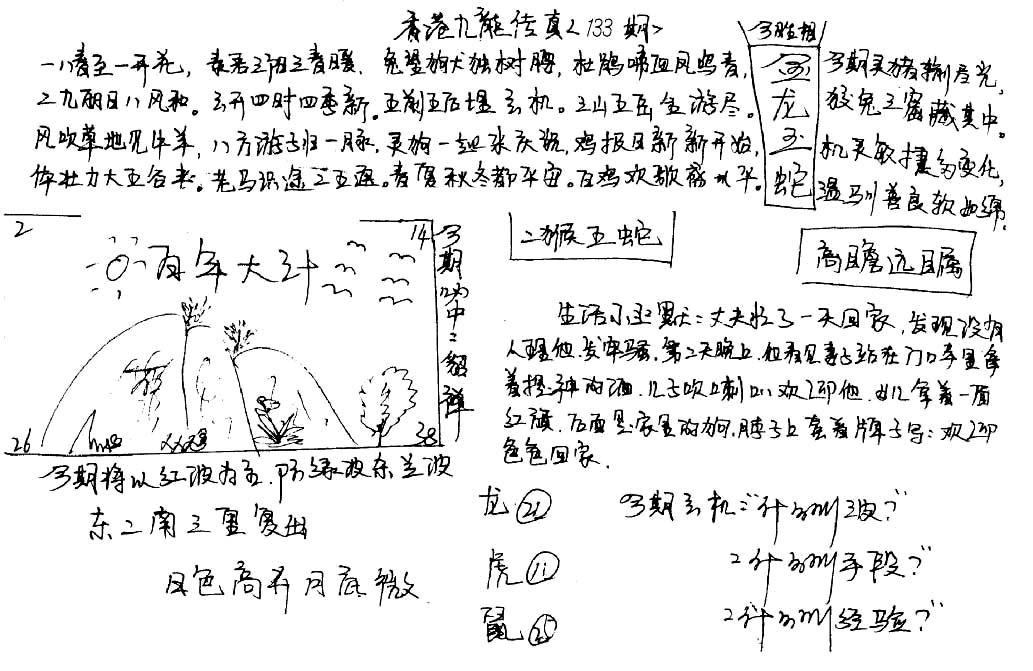 香港九龍传真<133期>
一八春至一开花，春若三阳三春暖，兔望狗犬独树腾，杜鹃啼血凤鸣春，
二九丽日八风和。玄开四时四季新。五前五后埋玄机。三山五岳全游尽。
风吹草地见牛羊，八方游子归一脉，灵狗一起来庆祝，鸡报日新新开始，
体壮力大五谷来。老马识途二五遇。春夏秋冬都平安。百鸡欢歌

平。
今期肖相
金龙玉蛇
今期灵猪输尽光，
狡兔三窟藏其中。
机灵敏捷多变化，
温驯善良软如绵。
2
14
百年大计
26
38
今期必中：貂禅
二猴五蛇
高瞻远瞩
生活小幽默：丈夫忙了一天回家，发现没有
人理他，发牢骚，第二天晚上，他看见妻子站在门口，手里拿
着提神的酒，儿子吹喇叭欢迎他，女儿拿着一面
红旗，后面是家里的狗，脖子上套着牌子写：欢迎
色色回家。
今期将以红波为主，防绿波杀兰波
东二南三里寻出
风色高升月底微
龙 21
虎 11
鼠 25
今期玄机："什么叫
2什么叫手段？"
2什么叫经验？"